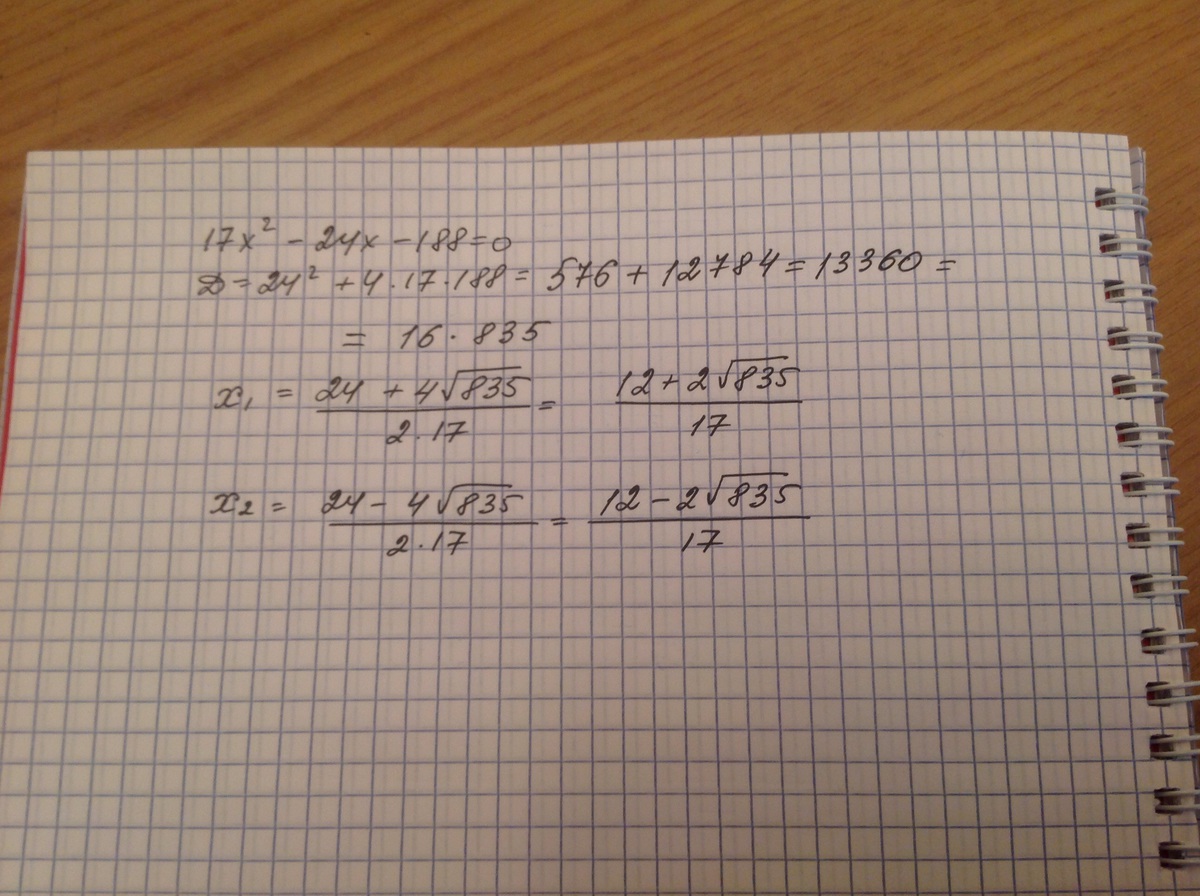 17x² - 24x - 188 = 0
D = 24² + 4 · 17 · 188 = 576 + 12784 = 13360 =
= 16 · 835
x₁ = (24 + 4√835) / (2 · 17) = (12 + 2√835) / 17
x₂ = (24 - 4√835) / (2 · 17) = (12 - 2√835) / 17